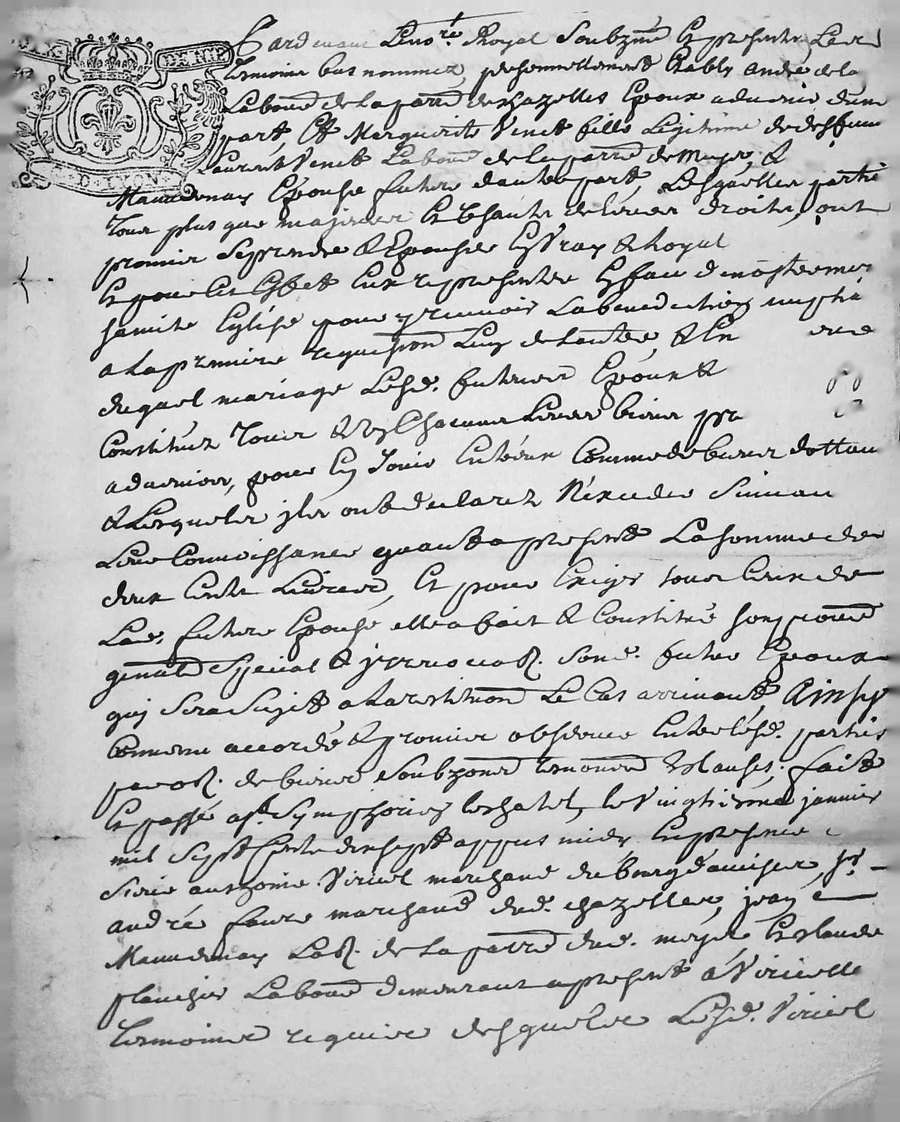 DE LYON
Pardevant Le no.re Royal Soubzné Et presents Les
Temoins bas nommez, personnellement Estably andré de la
Labour de la parr de chazelles Epoux advenir dune
part, Et Marguerite Venet fille Legitime de deffun
Laurent Venet Labour de la parr de Meys, &
Epouse future dautre part, Lesquelles partie
tous plus que majeurs Et Usants de leurs droits, ont
promis se prendre & Epouser En Vray & Loyal
Et pour Cet Effet Eux representer En face de nostre mere
sainte Eglise pour y recevoir La benediction nuptia
a La premiere requisition Lun de Lautre & En
duquel mariage Lesd. futurs Epoux
Constituez Tous & Un Chacuns Leurs biens
advenir, pour En Jouir Comme de biens dottau
& Lesquels ils ont declarez N'exceder Suivan
Leur Connoissance quant a present La Somme de
deux Cents Livres, Et pour Exiger tous Ceux de
Lad. future Epouse elle a fait & Constitué son procur
general Special & irrevocab. sond. futur Epoux
qui Sera Sujet a La restitution Le Cas arrivant Ainsy
Comme accordé & promis observer Entre lesd. parties
par obl. de biens Soubzmis renonce & Clauses; fait
Et passé a St. Symphorien Le chatel, le Vingtieme janvier
mil Sept Cents dix sept appres midy En presence
Sieur anthoine Viricel marchand du bourg d'aveize, Sr.
andré faure marchand dud. chazelles, jean
Lab. de La parr dud. Meys Et Claude
Labour demeurant a present a Viricelle
Temoins requis desquels Led. Viricel